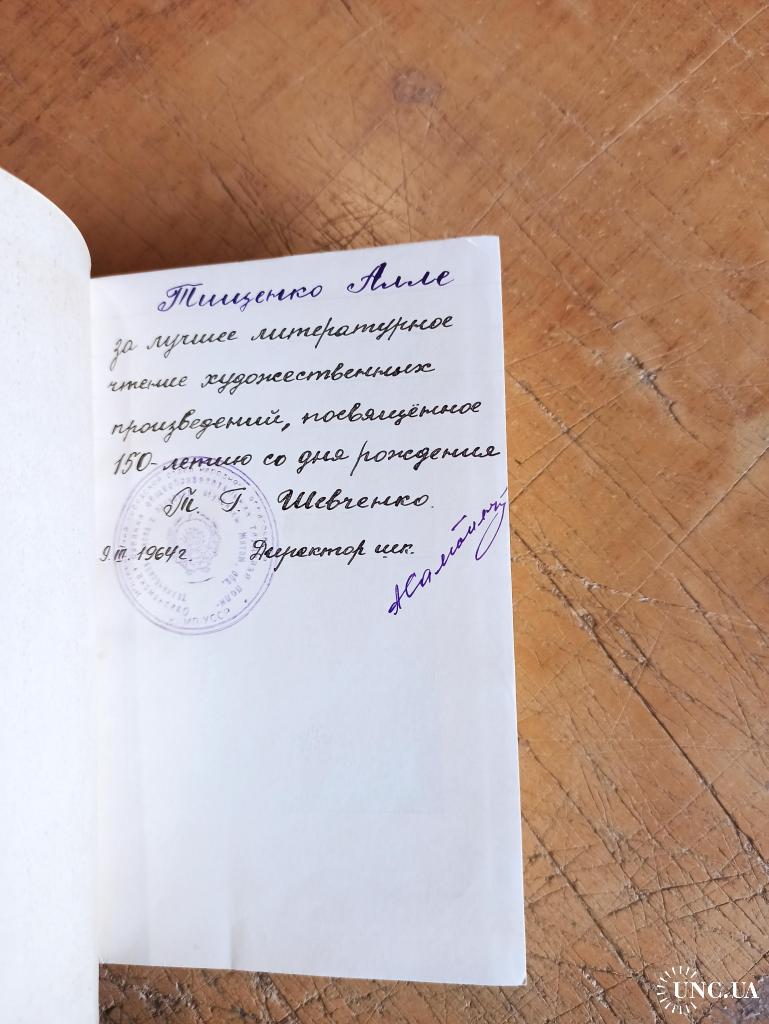 Тищенко Алле
за лучшее литературное
чтение художественных
произведений, посвящённое
150-летию со дня рождения
Т. Г. Шевченко.
9.III.1964 г. Директор шк.
УССР
UNC.UA